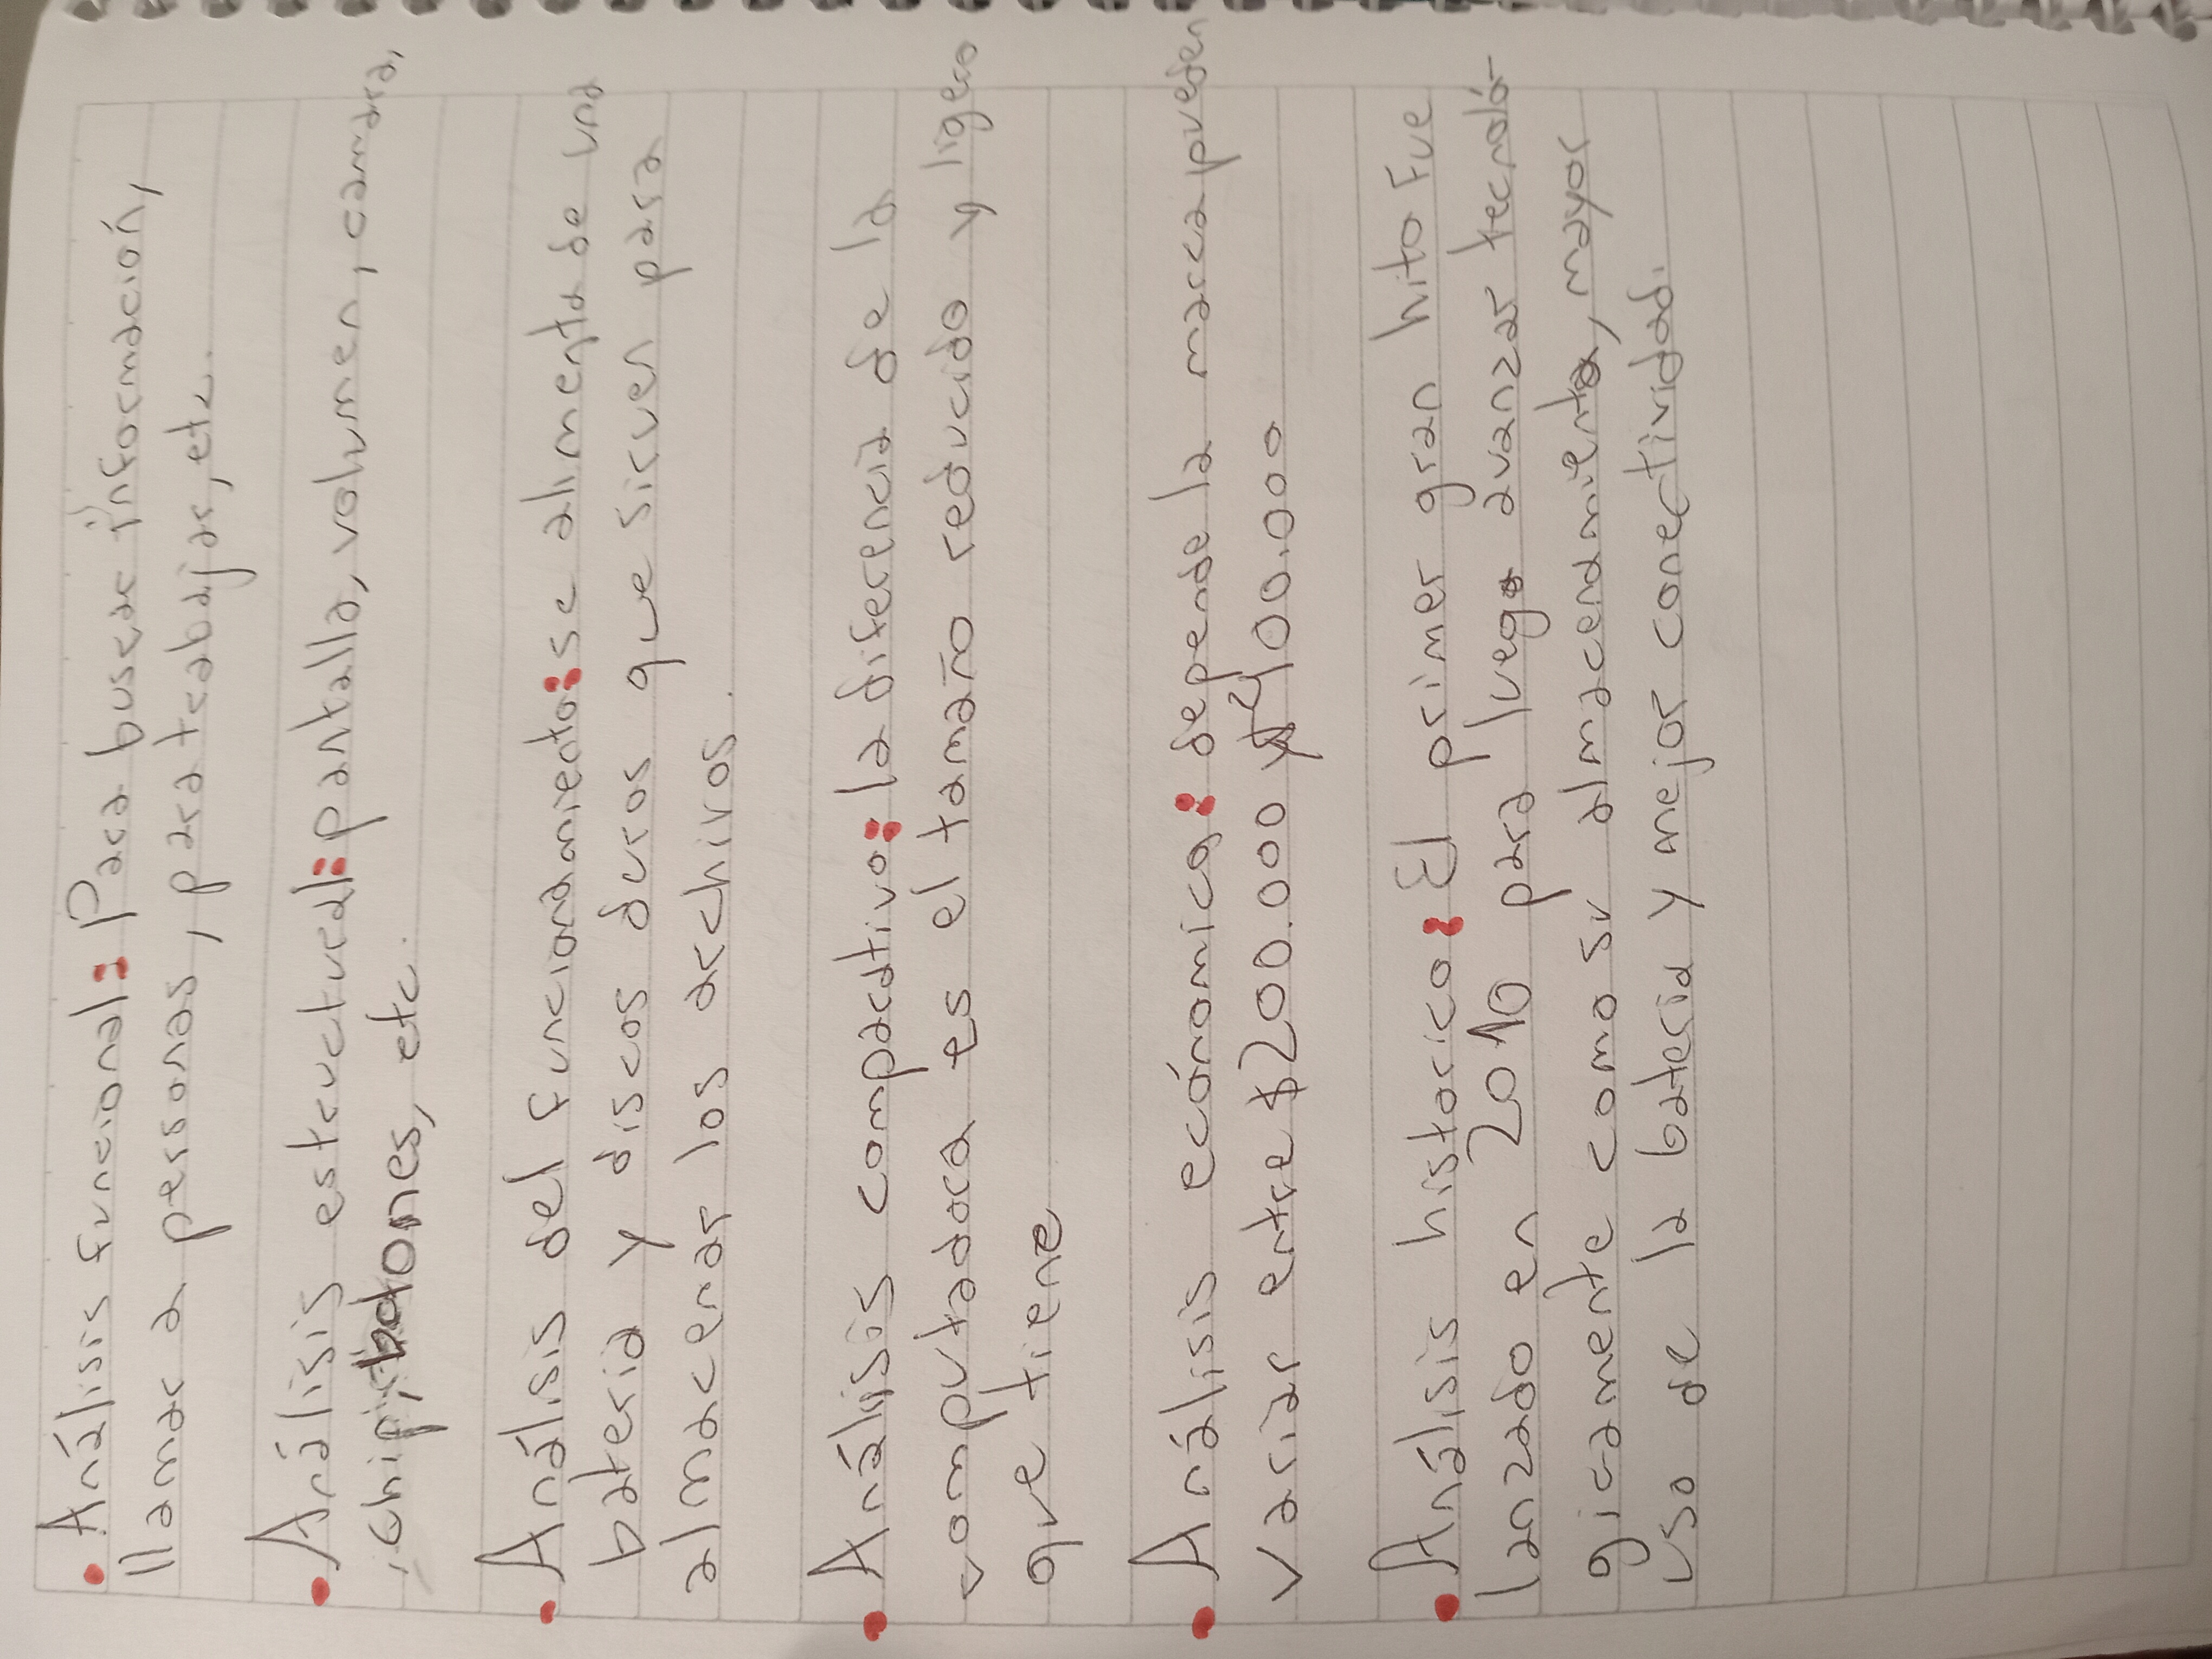 • Análisis funcional: Para buscar información,
llamar a personas, para trabajar, etc.
• Análisis estructural: pantalla, volumen, camara,
, chip, botones, etc.
• Análisis del funcionamieto: se alimenta de una
bateria y discos duros que sirven para
almacenar los archivos.
• Análisis comparativo: la diferencia de la
computadora es el tamaño reducido y ligero
que tiene
• Análisis ecónomico: depende la marca pueden
variar entre $200.000 y 400.000
• Análisis historico: El primer gran hito fue
lanzado en 2010 para luego avanzar tecnoló-
gicamente como su almacenamiento, mayor
uso de la bateria y mejor conectividad.